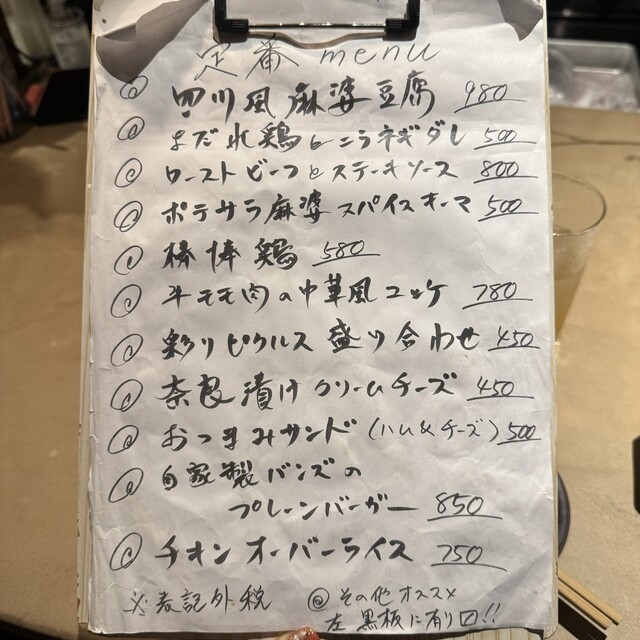 定番menu
◎ 四川風麻婆豆腐 980
◎ よだれ鶏とニラネギダレ 500
◎ ローストビーフとステーキソース 800
◎ ポテサラ麻婆スパイスキーマ 500
◎ 棒棒鶏 580
◎ 牛モモ肉の中華風ユッケ 780
◎ 彩りピクルス盛り合わせ 450
◎ 奈良漬けクリームチーズ 450
◎ おつまみサンド(ハム&チーズ) 500
◎ 自家製バンズの
プレーンバーガー 850
◎ チキンオーバーライス 750
※表記外税 ◎その他オススメ
左黒板に有り〼!!